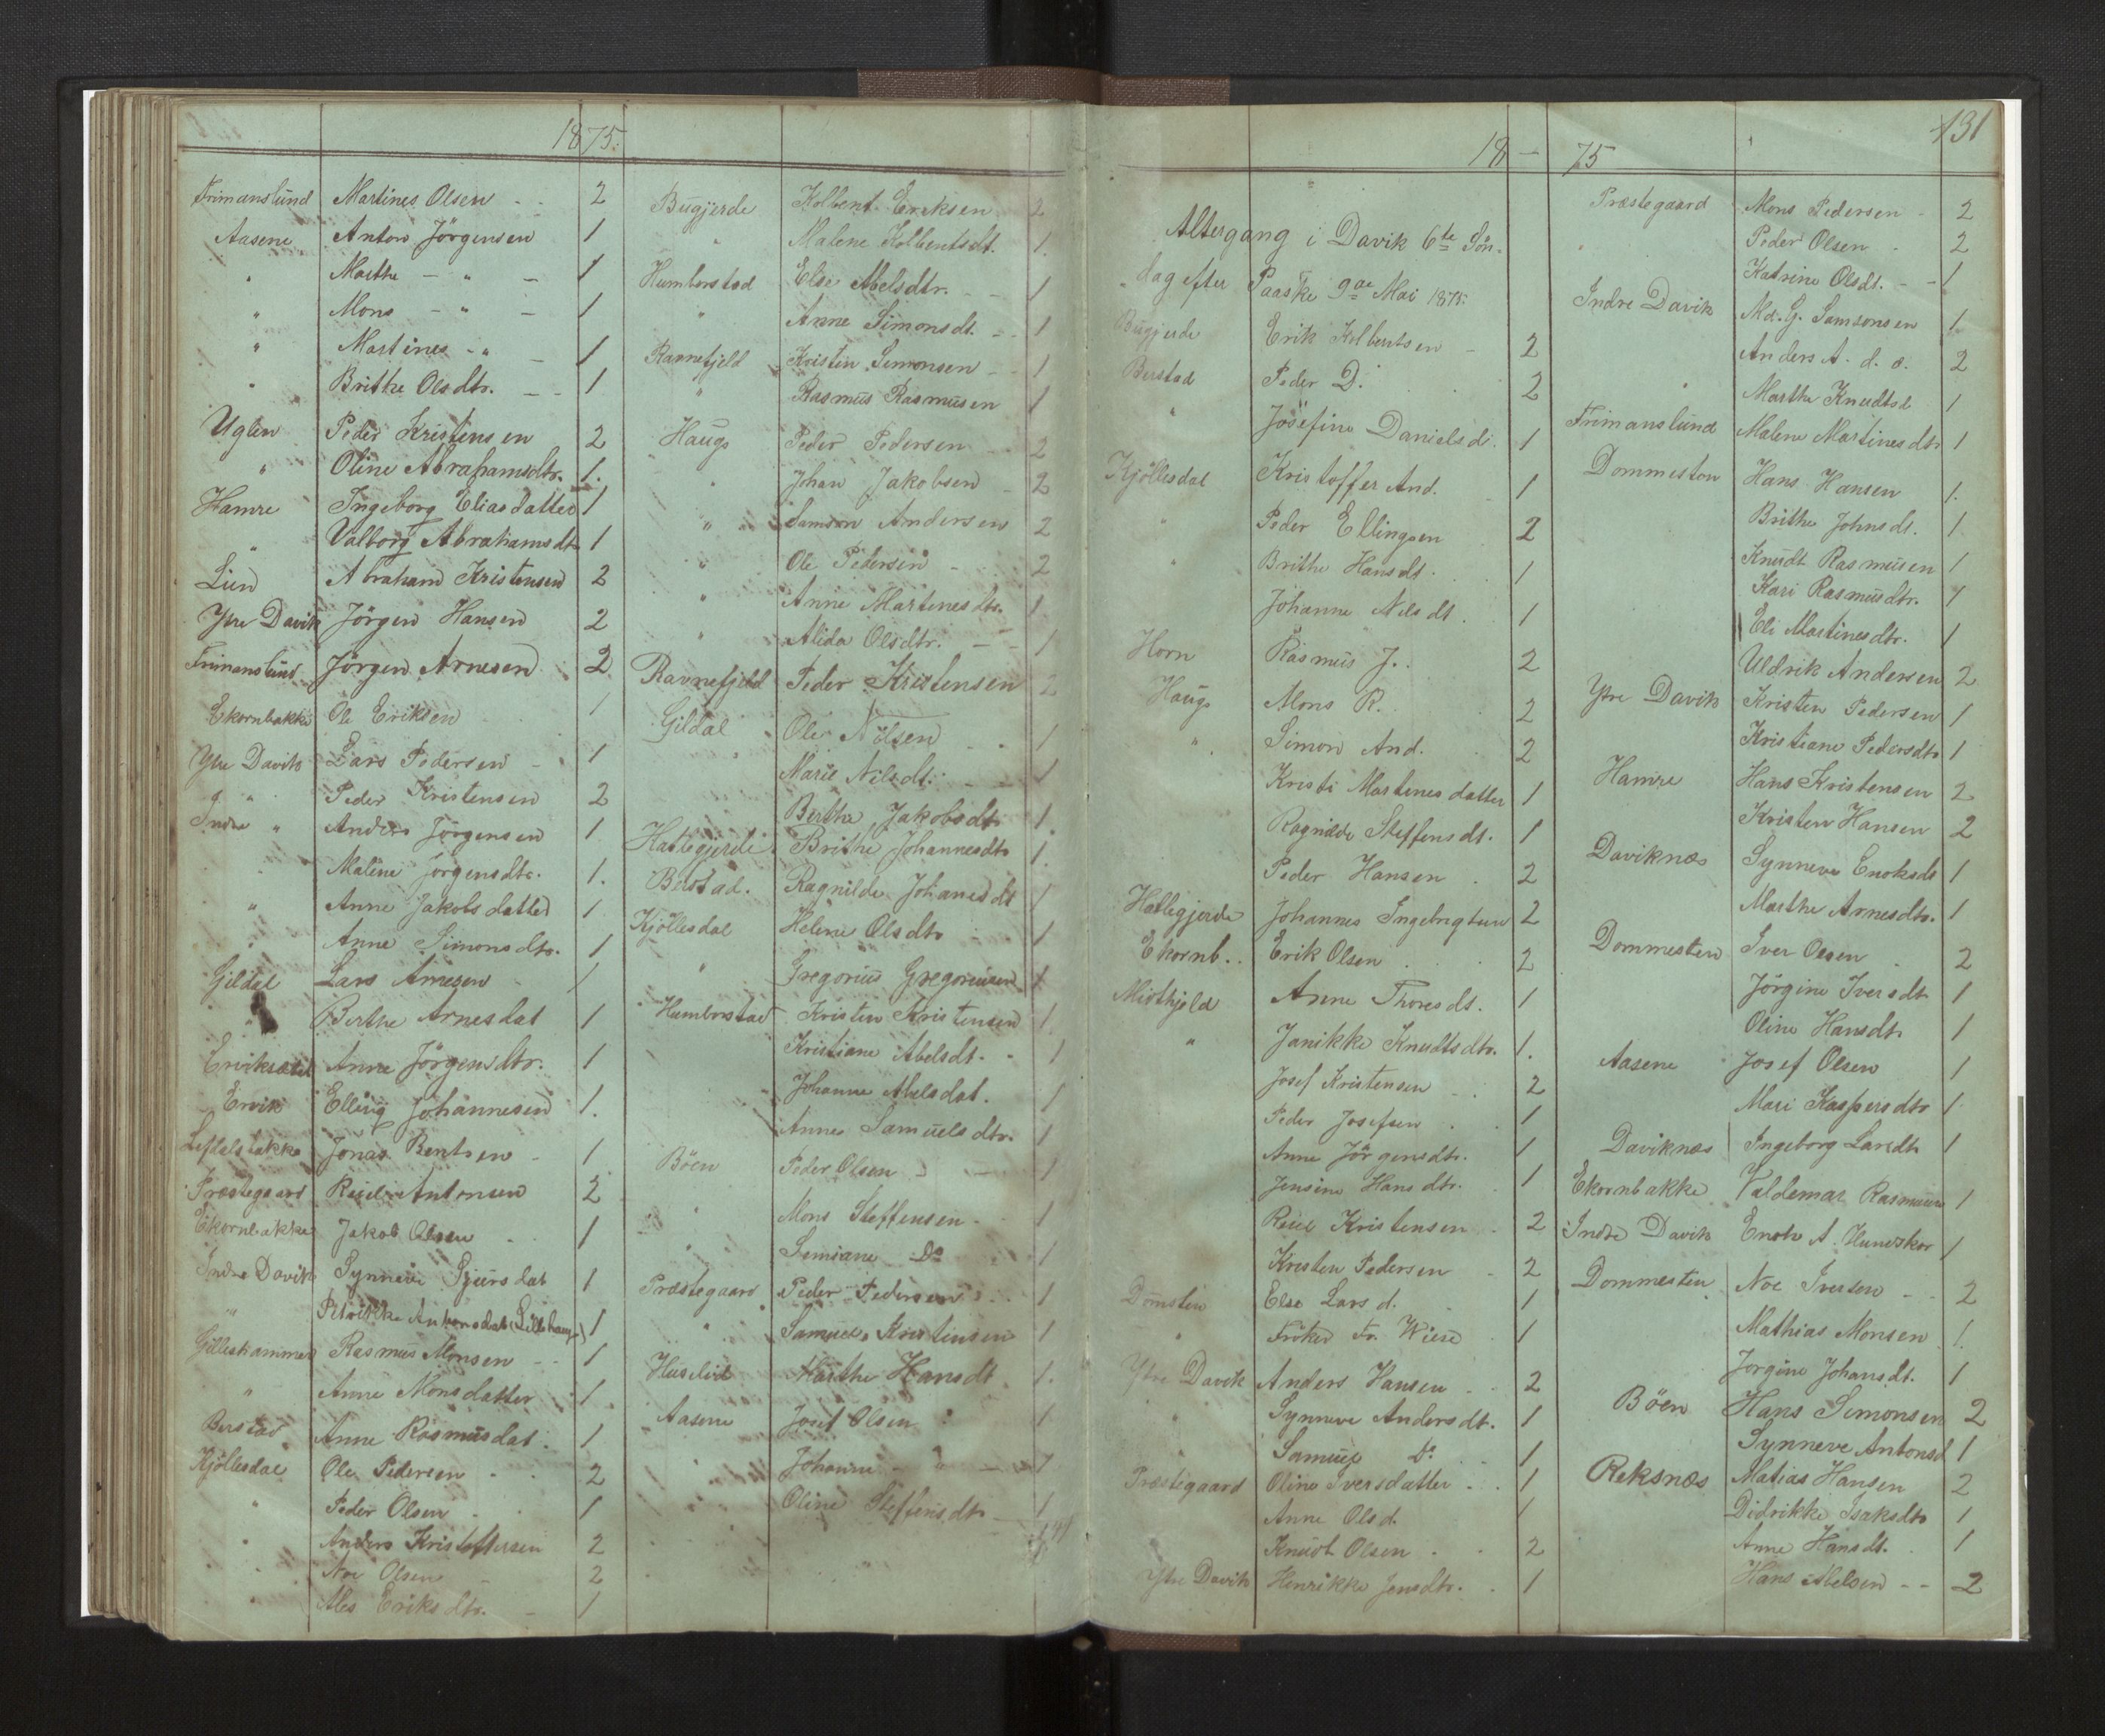 1875.
Frimanslund Martines Olsen 2
Aasene Anton Jörgensen 1
" Marthe - " - 1
" Mons - " - 1
" Martines - " - 1
" Brithe Olsdtr. 1
Uglen Peder Kristensen 2
" Oline Abrahamsdtr. 1.
Hamre Ingeborg Eliasdatter 1
" Valborg Abrahamsdtr 1
Lien Abraham Kristensen 2
Ytre Davik Jörgen Hansen 2
Frimanslund Jörgen Arnesen 2
Ekornbakke Ole Eriksen 1
Ytre Davik Lars Pedersen 1
" Peder Kristensen 2
Indre " Anders Jörgensen 1
Malene Jörgensdtr. 1.
" Anne Jakobsdatter 1
" Anne Simonsdtr. 1
Gildal Lars Arnesen 1
" Berthe Arnesdat 1
Anne Jörgensdtr. 1
Ervik Elling Johannesen 1.
Jonas Bentsen 1
Præstegaard Antonsen 2
Ekornbakke Jakob Olsen 1
Indre Davik Synneve Sjursdat 1
" Petrikke Antonsdat 1
Gilleskammer Rasmus Monsen 1
" Anne Monsdatter 1
Berstad Anne Rasmusdat. 1
Kjöllesdal Ole Pedersen 2
" Peder Olsen 1
" Anders Kristoffersen 2
Noe Olsen 2
" Ales Eriksdtr. 1
Bugjerde Kolbent Eriksen 2
" Malene Kolbentsdt. 1.
Humborstad Else Abelsdtr. 1
" Anne Simonsdt. 1
Ravnefjeld Kristen Simonsen 1
" Rasmus Rasmusen 1
Haugs Peder Pedersen 2
" Johan Jakobsen 2
" Samson Andersen 2
" Ole Pedersen 2
" Anne Martinesdtr. 1
" Alida Olsdtr. 1
Ravnefjeld Peder Kristensen 2
Gildal Ole Nilsen 1
" Marie Nilsdt. 1
Berthe Jakobsdt 1
Hatlegjerde Brithe Johannesdtr 1.
Berstad. Ragnilde Johanesdt 1
Kjöllesdal Helene Olsdtr 1
" Gregorius Gregoriusen 1
Humborstad Kristen Kristensen 1
Kristiane Abelsdt. 1
Johanne Abelsdat. 1
Anne Samuelsdtr. 1
Böen Peder Olsen 1
" Mons Steffensen 1
" Simiane Do 1
Præstegaard Peder Pedersen 1
" Samuel Kristensen 1
Huselid Marthe Hansdt 1.
Aasene Josef Olsen 1
Johanne - " - 1
Oline Steffensdtr 1
18 - 75
131
Altergang i Davik 6te Søn-
dag efter Paaske 9de Mai 1875.
Bugjerde Erik Kolbentsen 2
Berstad Peder D. 2
" Jósefine Danielsdt. 1
Kjöllesdal Kristoffer And. 1
" Peder Ellingsen 2
" Brithe Hansdt. 1
Johanne Nilsdt. 1
Horn Rasmus J. 2
Haugs Mons R. 2
" Simon And. 2
Kristi Martinesdatter 1
Ragnilde Steffensdt. 1
Peder Hansen 2
Hatlegjerde Johannes Ingebrigtsen 2
Ekornb. Erik Olsen 2
Midthjeld Anne Thoresdt. 1
" Janikke Knudtsdtr. 1.
Josef Kristensen 2
Peder Josefsen 1
Anne Jörgensdtr. 1
Jensine Hansdtr. 1
Kristensen 2
Kristen Pedersen 2
Domsten Else Larsd. 1
" Fröken Fr. Wiese 1
Ytre Davik Anders Hansen 2
" Synneve Andersdt. 1
" Samuel Do 1
Præstegaard Oline Iversdatter 1
Anne Olsd. 1
Knudt Olsen 2
Ytre Davik Henrikke Jensdtr. 1
Præstegaard Mons Pedersen 2
" Peder Olsen 2
Katrine Olsdt. 1
Indre Davik Md. G. Samsonsen 1
Anders A. d. o. 2
" Marthe Knudtsd 1
Frimanslund Malene Martinesdtr 1
Dommesten Hans Hansen 1.
Brithe Johnsdt. 1
Knudt Rasmusen 1
Kari Rasmusdtr. 1
Eli Martinesdtr. 1
Uldrik Andersen 2
Ytre Davik Kristen Pedersen 1
Kristiane Pedersdtr 1
Hamre Hans Kristensen 2
Kristen Hansen 2
Daviknæs Synneve Enoksdt 1
Marthe Arnesdtr. 1
Dommesten Iver Olsen 2
Jörgine Iversdt 1
Oline Hansdt 1
Aasene Josef Olsen 1
Mari Kaspersdtr 1
Daviknæs Ingeborg Larsdt 1
Ekornbakke Valdemar Rasmusen 1
Indre Davik Enok A. Hundskor 1
Dommesten Noe Iversen 2
Mathias Monsen 1.
Jorgine Johansdt. 1
Böen Hans Simonsen 2
Synneve Antonsd 1
Reksnæs Matias Hansen 2
Didrikke Isaksdtr 1
Anne Hansdt. 1
Hans Abelsen 2